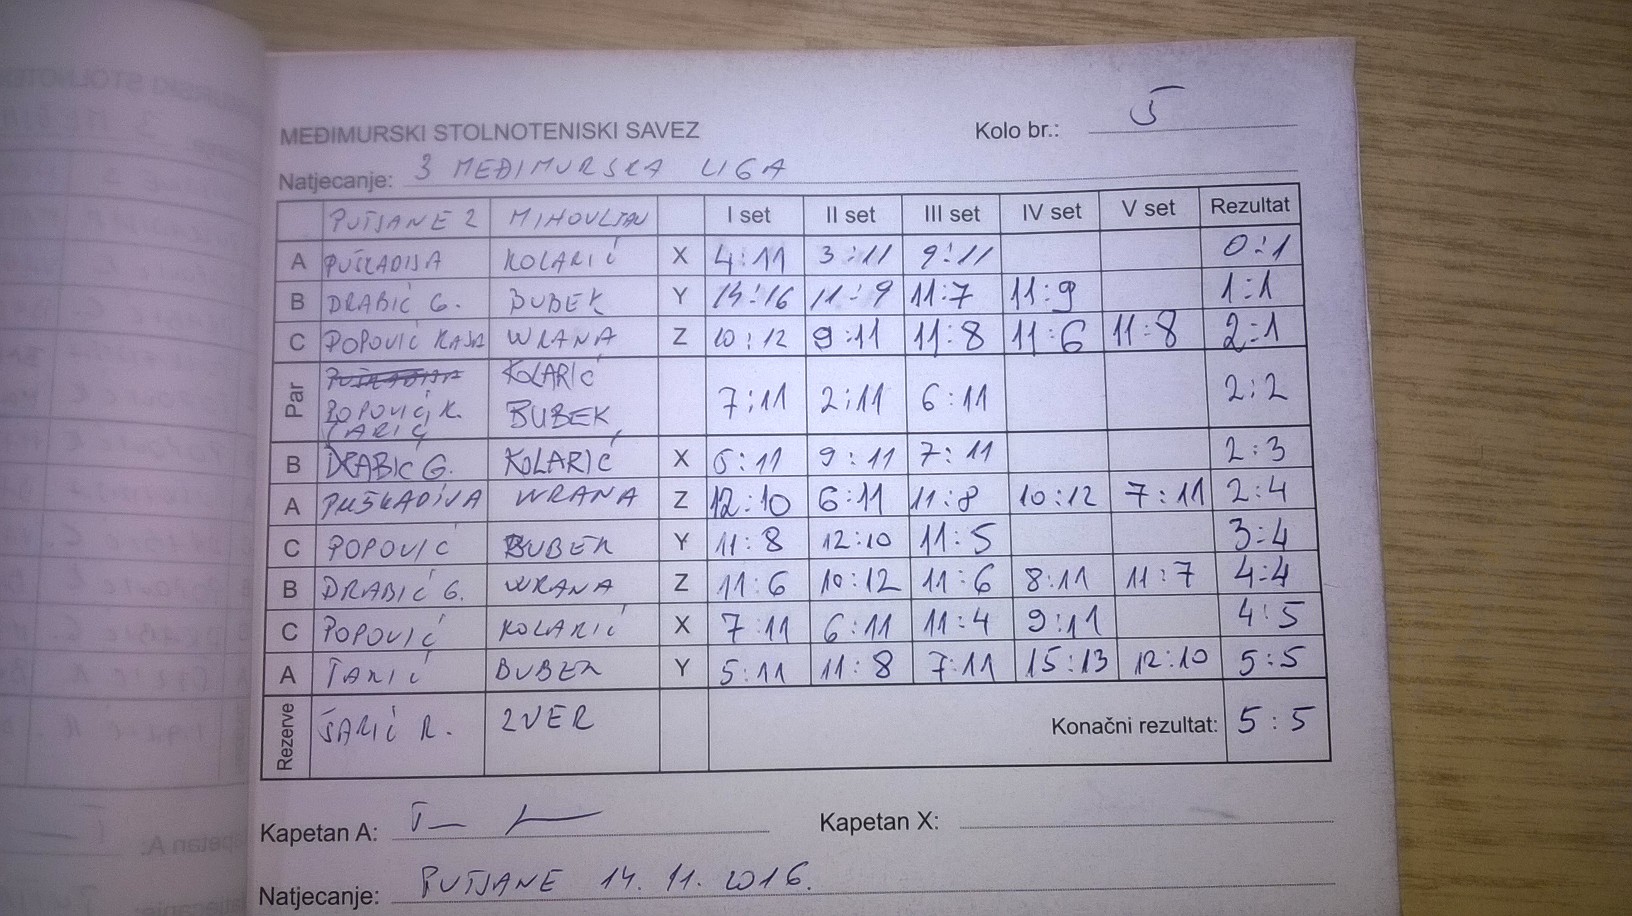 MEĐIMURSKI STOLNOTENISKI SAVEZ Kolo br.: 5
Natjecanje: 3 MEĐIMURSKA LIGA
PUTJANE 2 MIHOVLJAN I set II set III set IV set V set Rezultat
A PUŠKADIJA KOLARIĆ X 4:11 3:11 9:11 0:1
B DRABIĆ G. BUBEK Y 14:16 11:9 11:7 11:9 1:1
C POPOVIĆ KAJA WRANA Z 10:12 9:11 11:8 11:6 11:8 2:1
Par KOLARIĆ
POPOVIĆ, K. BUBEK 7:11 2:11 6:11 2:2
ŠARIĆ
B DRABIĆ G. KOLARIĆ X 6:11 9:11 7:11 2:3
A PUŠKADIJA WRANA Z 12:10 6:11 11:8 10:12 7:11 2:4
C POPOVIĆ BUBEK Y 11:8 12:10 11:5 3:4
B DRABIĆ G. WRANA Z 11:6 10:12 11:6 8:11 11:7 4:4
C POPOVIĆ KOLARIĆ X 7:11 6:11 11:4 9:11 4:5
A ŠARIĆ BUBEK Y 5:11 11:8 7:11 15:13 12:10 5:5
Rezerve ŠARIĆ R. ZVER Konačni rezultat: 5:5
Kapetan A: Kapetan X:
Natjecanje: PUTJANE 14. 11. 2016.